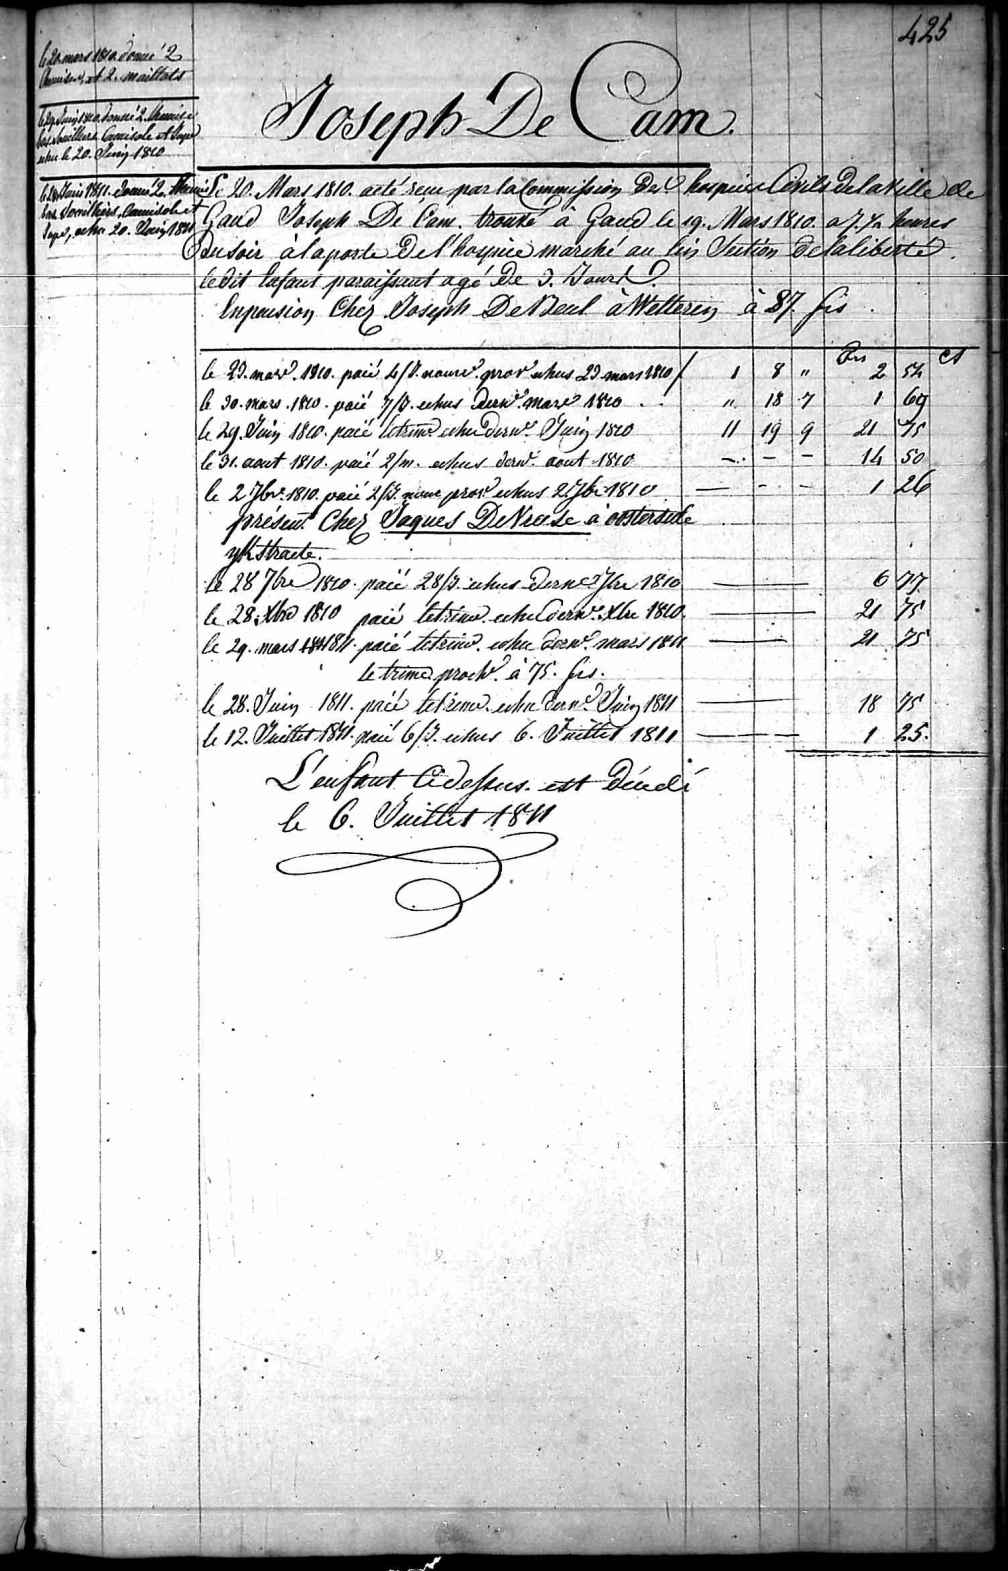 425
le 20 mars 1810 donné 2
Chemises et 2. maillots
le 29 Juin 1810 donné 2. Chemises
bas Souilliers Camisole et Jupe
echu le 20. Juin 1810
le 28 Juin 1811. donné 2. Chemis
bas Souilliers, Camisole et
Jupe, echu 20. Juin 1811
Joseph De Cam.
Le 20. Mars 1810. a eté reçu par la Commission des hospices Civils de la Ville de
Gand Joseph De Cam. trouvé à Gand le 19. Mars 1810. a 7 ½ heures
Du soir à la porte De l'hospice marché au lin Section de la liberté.
le dit Enfant paraissant agé De 3. Jours.
En pension Chez Joseph De Beul à Wetteren à 87. frs
frs ct
le 23. mars. 1810. paié 4/J. nourre. prove. echus 23. mars 1810 / 1 8 " 2 54
le 30. mars. 1810. paié 7/J. echus derne. mars 1810 . . " 18 7 1 69
le 29. Juin 1810. paié letrime echu derne. Juin 1810 11 19 9 21 75
le 31. aout 1810. paié 2/m. echus derne. aout 1810 - - - 14 50
le 2 7bre. 1810. paié 2/J. nour prove echus 2 7bre 1810 - - - 1 26
présent. Chez Jaques De Vreese à oosterzeele
straete.
le 28 7bre 1810. paié 28/J. echus derne 7bre 1810 6 77
le 28. Xbre 1810 paié letrime. echu derne. Xbre 1810. 21 75
le 29. mars 1811. paié letrime. echu derne. mars 1811 21 75
le trime proch. à 75. frs.
le 28. Juin 1811. paié letrime. echu derne. Juin 1811 18 75
le 12. Juillet 1811. paié 6/J. echus 6. Juillet 1811 1 25.
L'enfant Cidessus. est Décédé
le 6. Juillet 1811